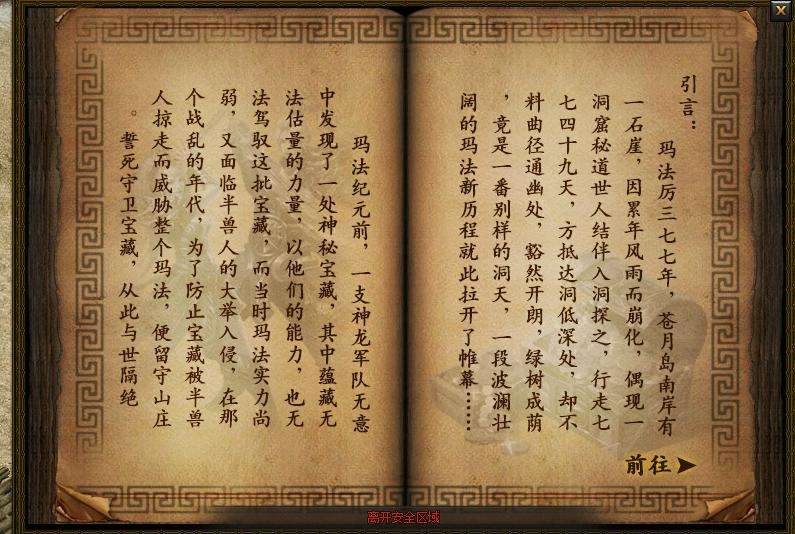 引言：
玛法历三七七年，苍月岛南岸有
一石崖，因累年风雨而崩化，偶现一
洞窟秘道世人结伴入洞探之，行走七
七四十九天，方抵达洞低深处，却不
料曲径通幽处，豁然开朗，绿树成荫
，竟是一番别样的洞天，一段波澜壮
阔的玛法新历程就此拉开了帷幕……
前往
玛法纪元前，一支神龙军队无意
中发现了一处神秘宝藏，其中蕴藏无
法估量的力量，以他们的能力，也无
法驾驭这批宝藏，而当时玛法实力尚
弱，又面临半兽人的大举入侵，在那
个战乱的年代，为了防止宝藏被半兽
人掠走而威胁整个玛法，便留守山庄
。誓死守卫宝藏，从此与世隔绝
离开安全区域